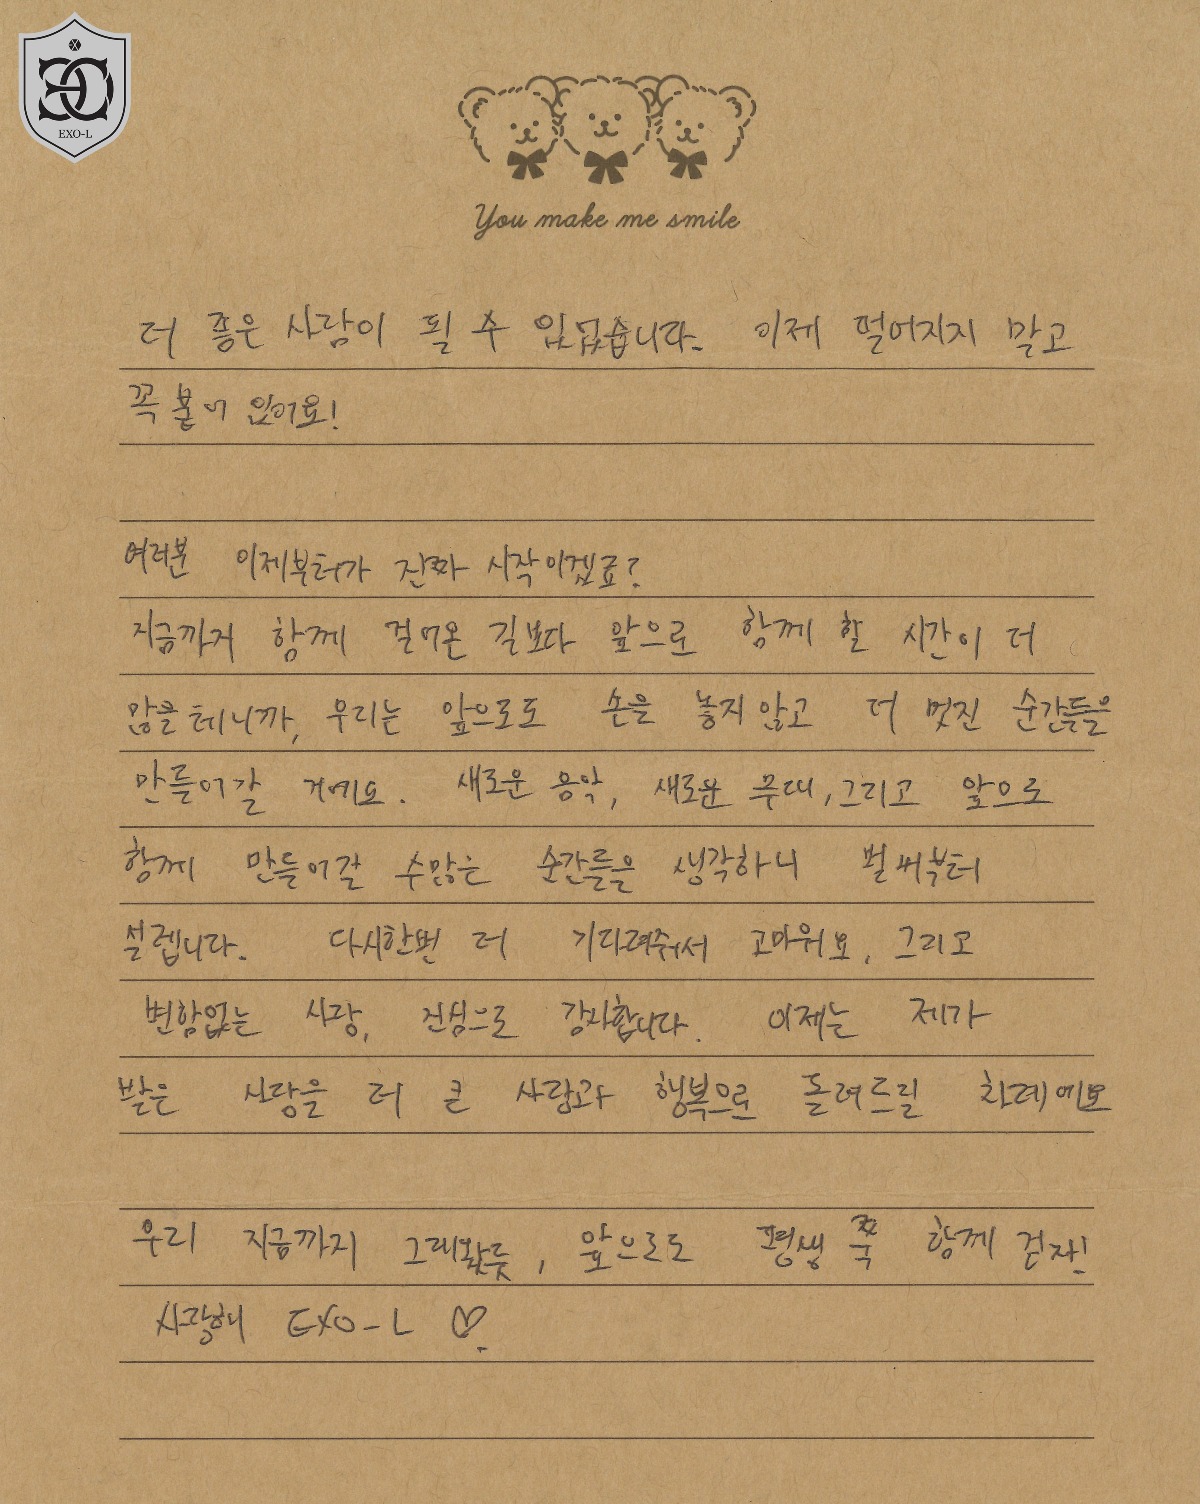 EXO-L
You make me smile
더 좋은 사람이 될 수 있었습니다. 이제 떨어지지 말고
꼭 붙어 있어요!
여러분 이제부터가 진짜 시작이겠죠?
지금까지 함께 걸어온 길보다 앞으로 함께 할 시간이 더
많을테니까, 우리는 앞으로도 손을 놓지않고 더 멋진 순간들을
만들어갈 거에요. 새로운 음악, 새로운 무대, 그리고 앞으로
함께 만들어갈 수많은 순간들을 생각하니 벌써부터
설렙니다. 다시한번 더 기다려줘서 고마워요, 그리고
변함없는 사랑, 진심으로 감사합니다. 이제는 제가
받은 사랑을 더 큰 사랑과 행복으로 돌려드릴 차례에요
우리 지금까지 그래왔듯, 앞으로도 평생 쭉 함께 걷자!
사랑해 EXO-L ♡.